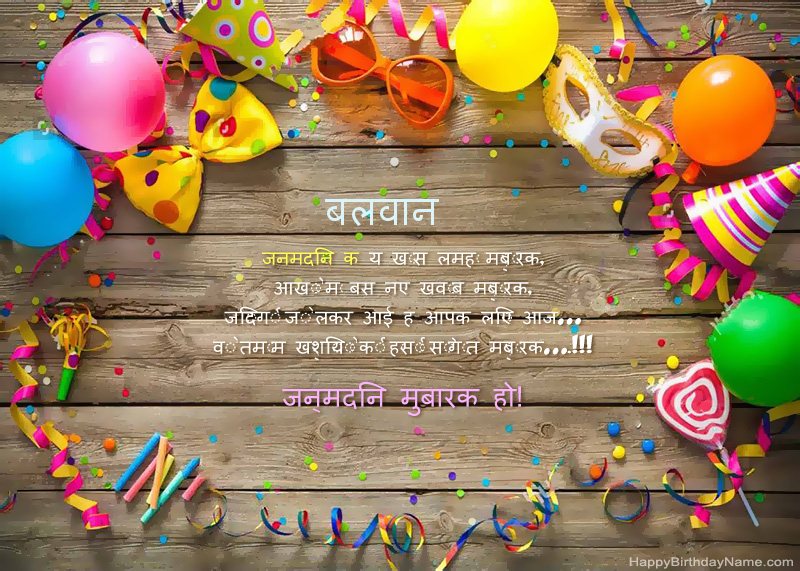 बलवान
जनमदनि क य खस लमह मबरक,
आखम बस नए खवब मबरक,
जदिग जलकर आई ह आपक लएि आज...
व तमम खशयि क हसस गत मबरक....!!!
जन्मदनि मुबारक हो!
HappyBirthdayName.com